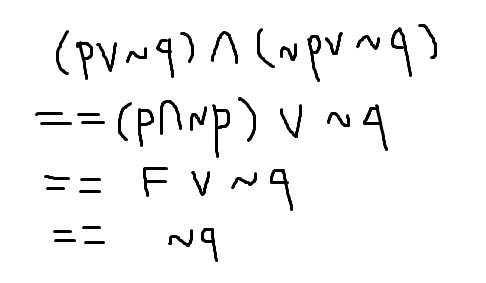 (p∨~q)∧(~p∨~q)
==(p∧~p) ∨ ~q
== F ∨ ~q
== ~q